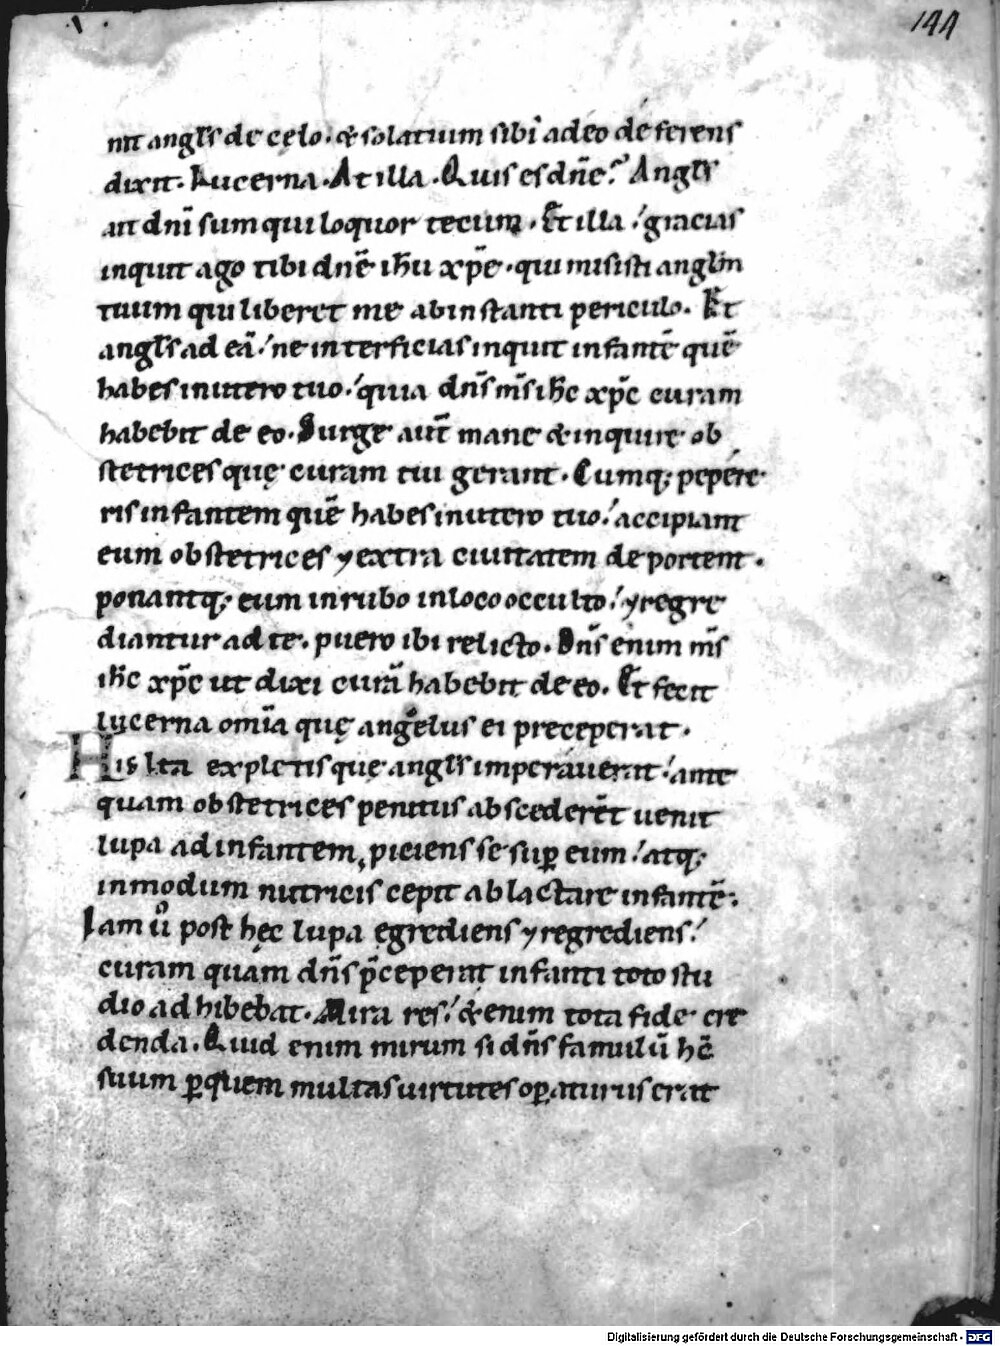 144
nit angl̅s de cęlo. & solatium sibi adeo deferens
dixit. Lucerna. At illa. Quis es dn̅e? Angl̅s
ait dn̅i sum qui loquor tecum. Et illa, gracias
inquit ago tibi dn̅e ih̅u xp̅e. qui misisti angl̅m
tuum qui liberet me ab instanti periculo. Et
angl̅s ad eā, ne interficias inquit infantē quē
habes in utero tuo, quia dn̅s m̅s ih̅c xp̅c curam
habebit de eo. Surge aut̅ mane & inquire ob
stetrices quę curam tui gerant. Cumq; pepere
ris infantem quē habes in utero tuo, accipiant
eum obstetrices ⁊ extra ciuitatem deportent.
ponantq; eum in rubo in loco occulto, ⁊ regre
diantur ad te. puero ibi relicto. Dn̅s enim m̅s
ih̅c xp̅c ut dixi curā habebit de eo. Et fecit
lucerna om̅ia quę angelus ei preceperat.
His Ita expletis quę angl̅s imperauerat, ante
quam obstetrices penitus abscederēt uenit
lupa ad infantem, piciens se sup̲ eum, atq;
in modum nutricis cepit ablactare infantē.
Iam u̅o post hęc lupa egrediens ⁊ regrediens,
curam quam dn̅s p̅ceperat infanti toto stu
dio adhibebat. Mira res, & enim tota fide cre
denda. Quid enim mirum si dn̅s famulū hc̅
suum p̲quem multas uirtutes op̲aturus erat
Digitalisierung gefördert durch die Deutsche Forschungsgemeinschaft - DFG